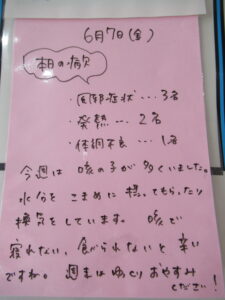 6月7日(金)
本日の病欠
・胃腸症状…3名
・発熱…2名
・体調不良…1名
今週は 咳の子が多くいました。
水分を こまめに 摂ってもらったり
換気をしています。 咳で
寝れない、食べられないと辛い
ですね。 週末はゆっくりおやすみ
ください!